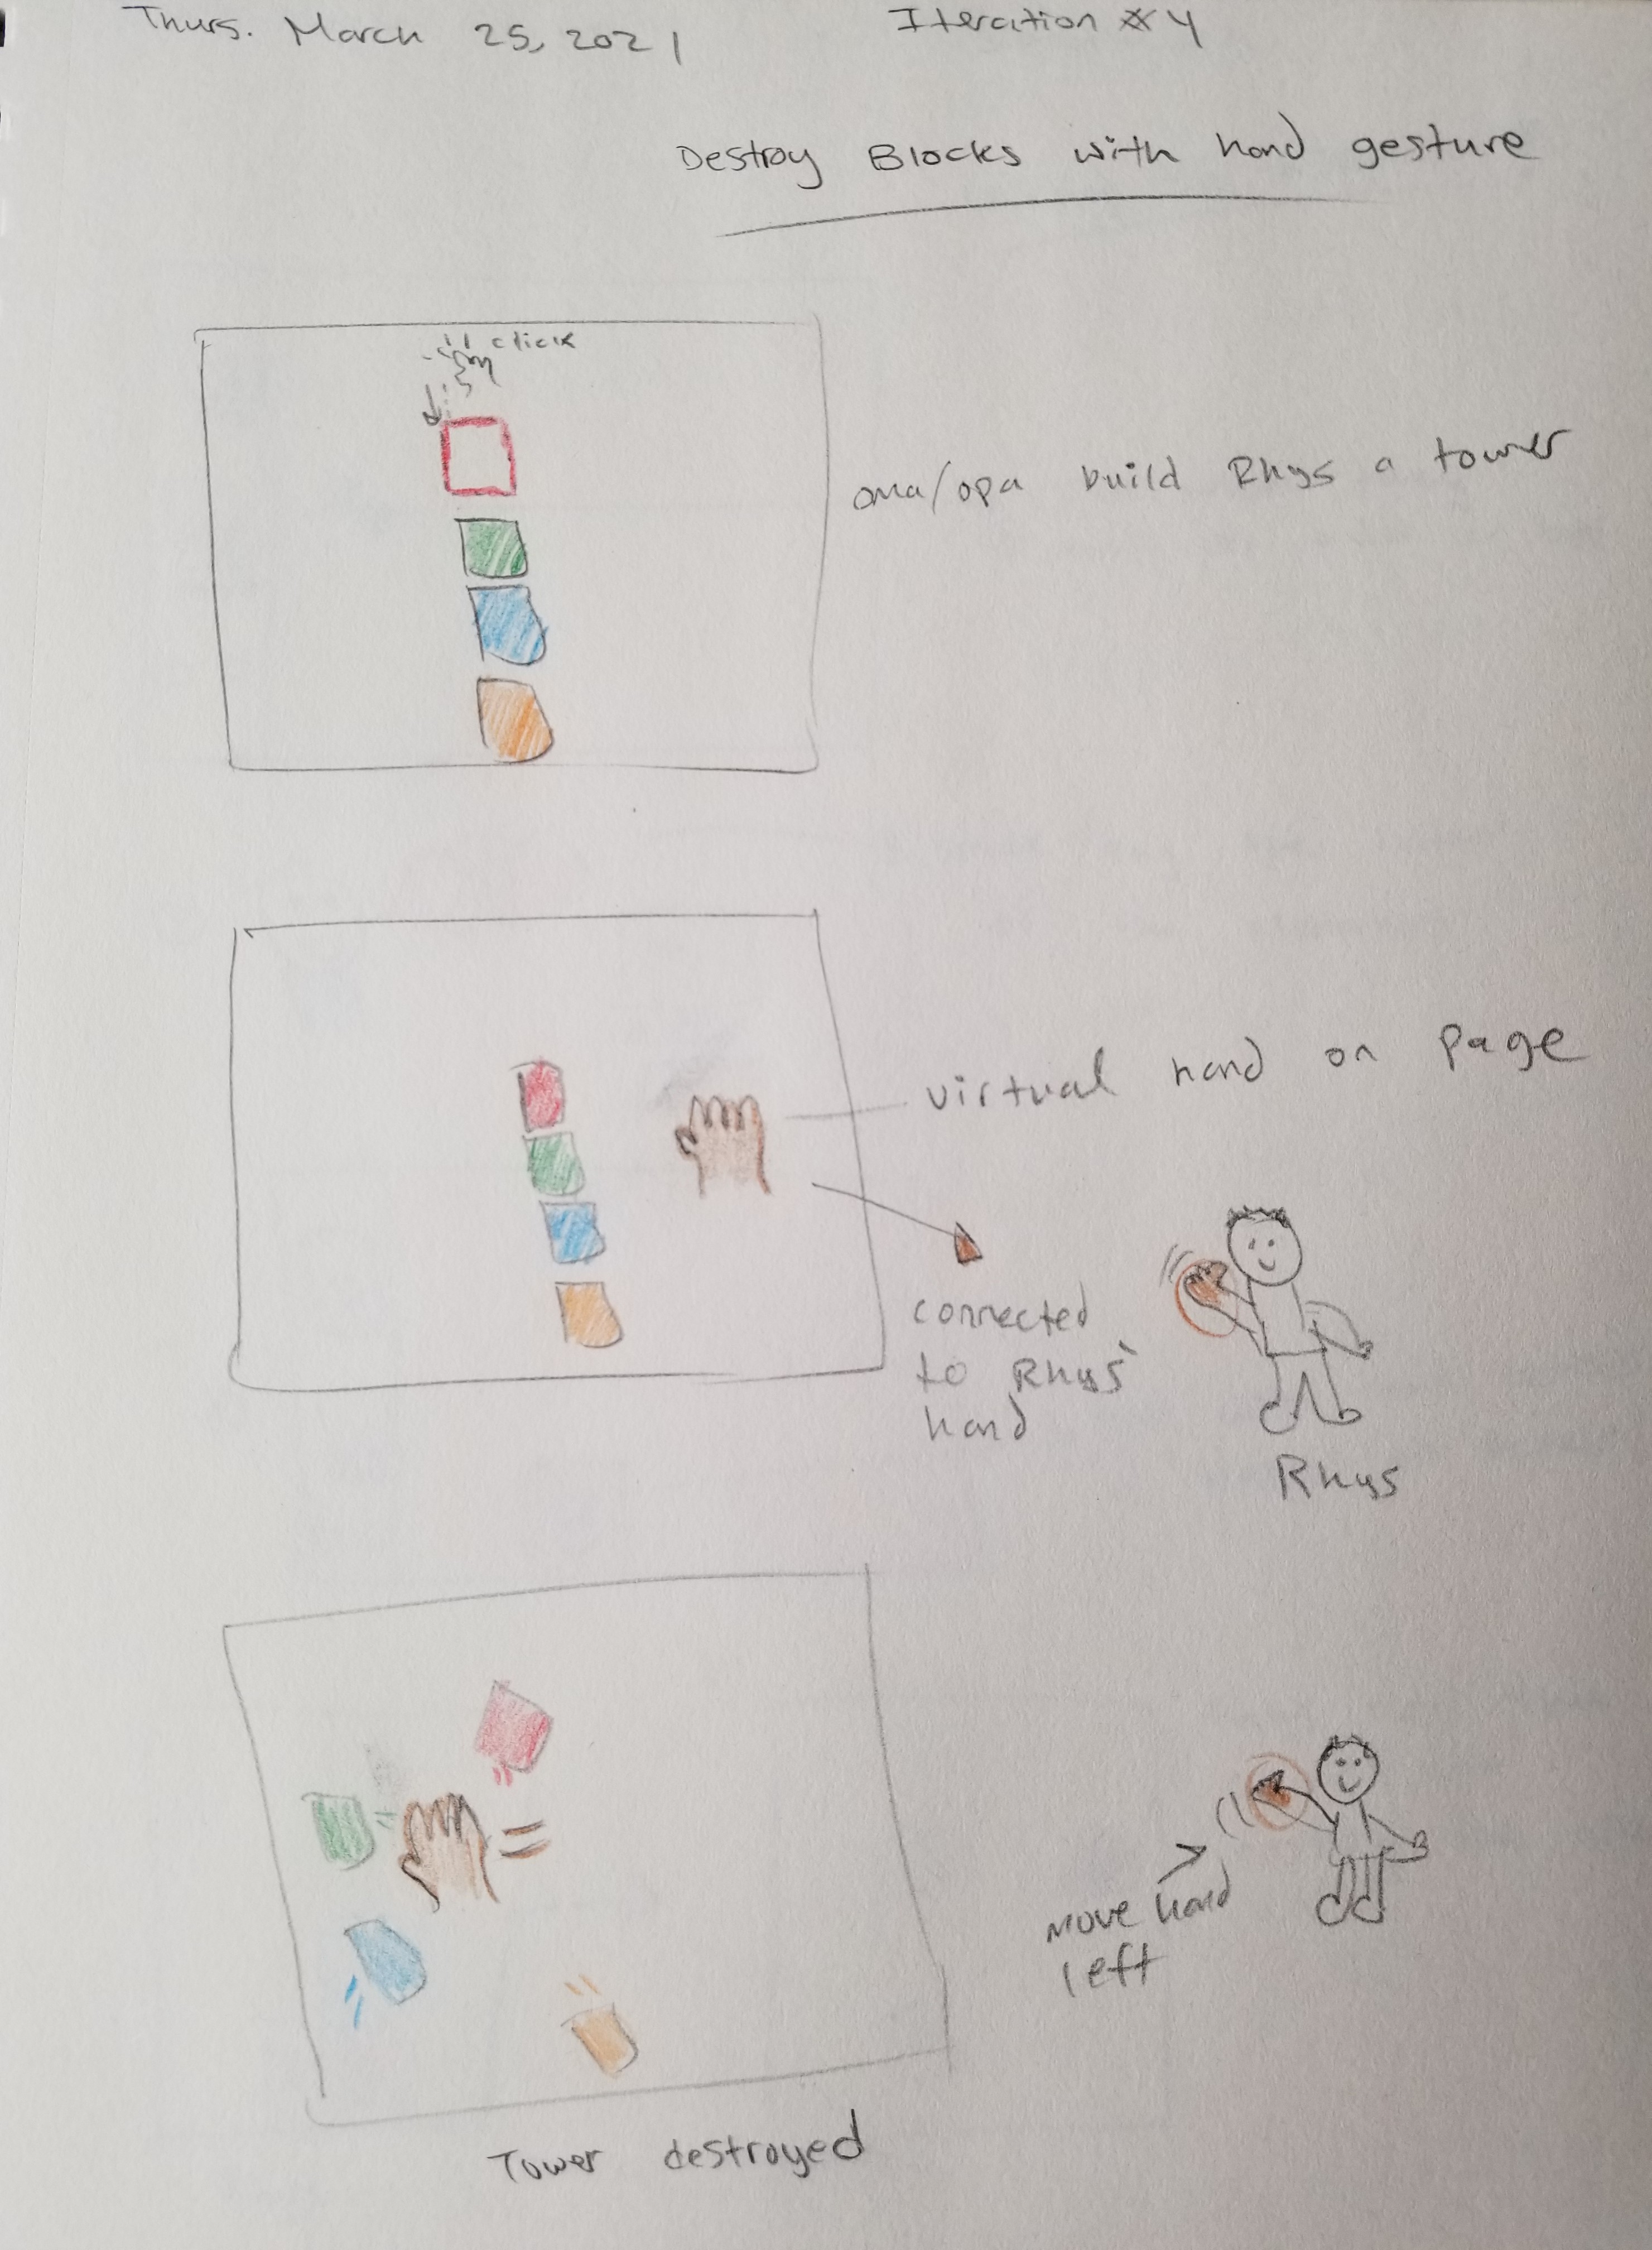 Thurs. March 25, 2021
Iteration #4
Destroy Blocks with hand gesture
click
oma/opa build Rhys a tower
virtual hand on page
connected
to Rhys'
hand
Rhys
move hand
left
Tower destroyed